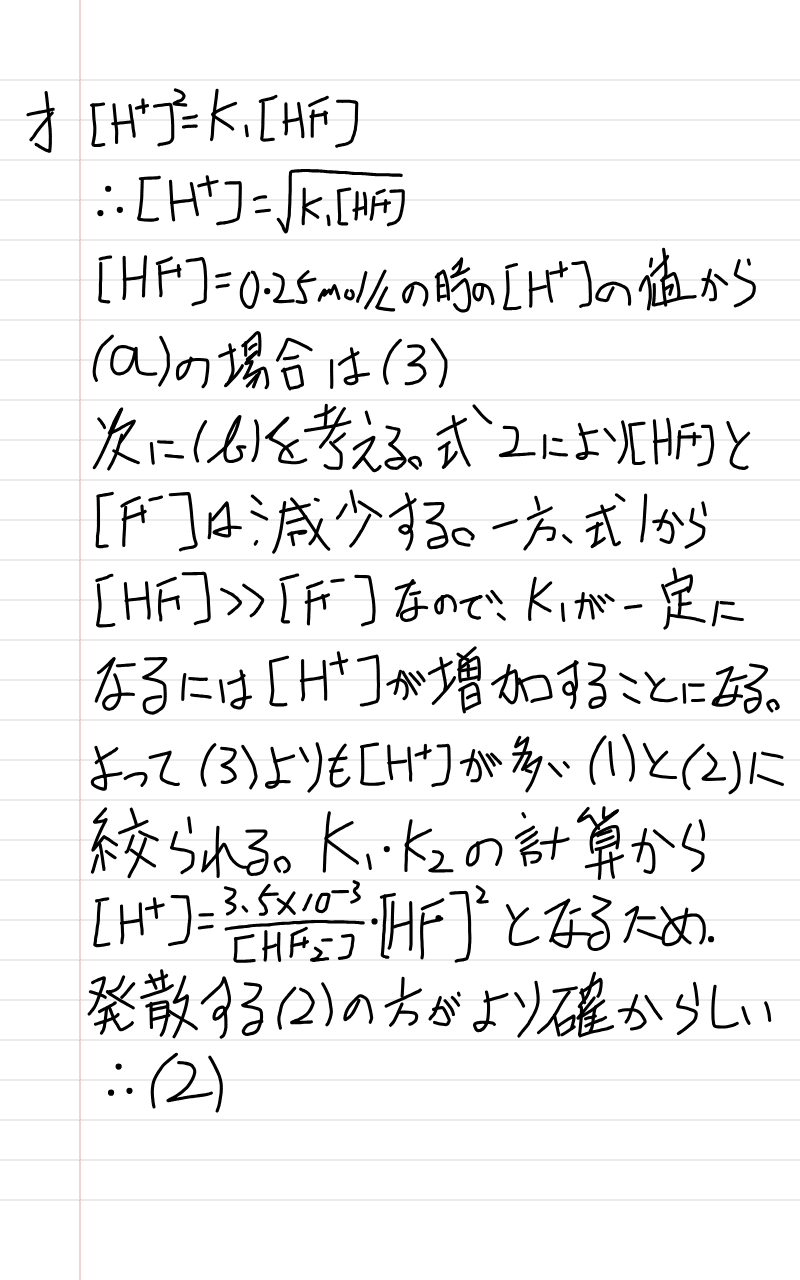 オ [H⁺]²=K₁[HF]
∴[H⁺]=√K₁[HF]
[HF]=0.25mol/Lの時の[H⁺]の値から
(a)の場合は(3)
次に(b)を考える。式2により[HF]と
[F⁻]は減少する。一方、式1から
[HF]>>[F⁻]なので、K₁が一定に
なるには[H⁺]が増加することになる。
よって(3)よりも[H⁺]が多い(1)と(2)に
絞られる。K₁・K₂の計算から
[H⁺]=3.5×10⁻³/[HF₂⁻]・[HF]²となるため.
発散する(2)の方がより確からしい
∴(2)